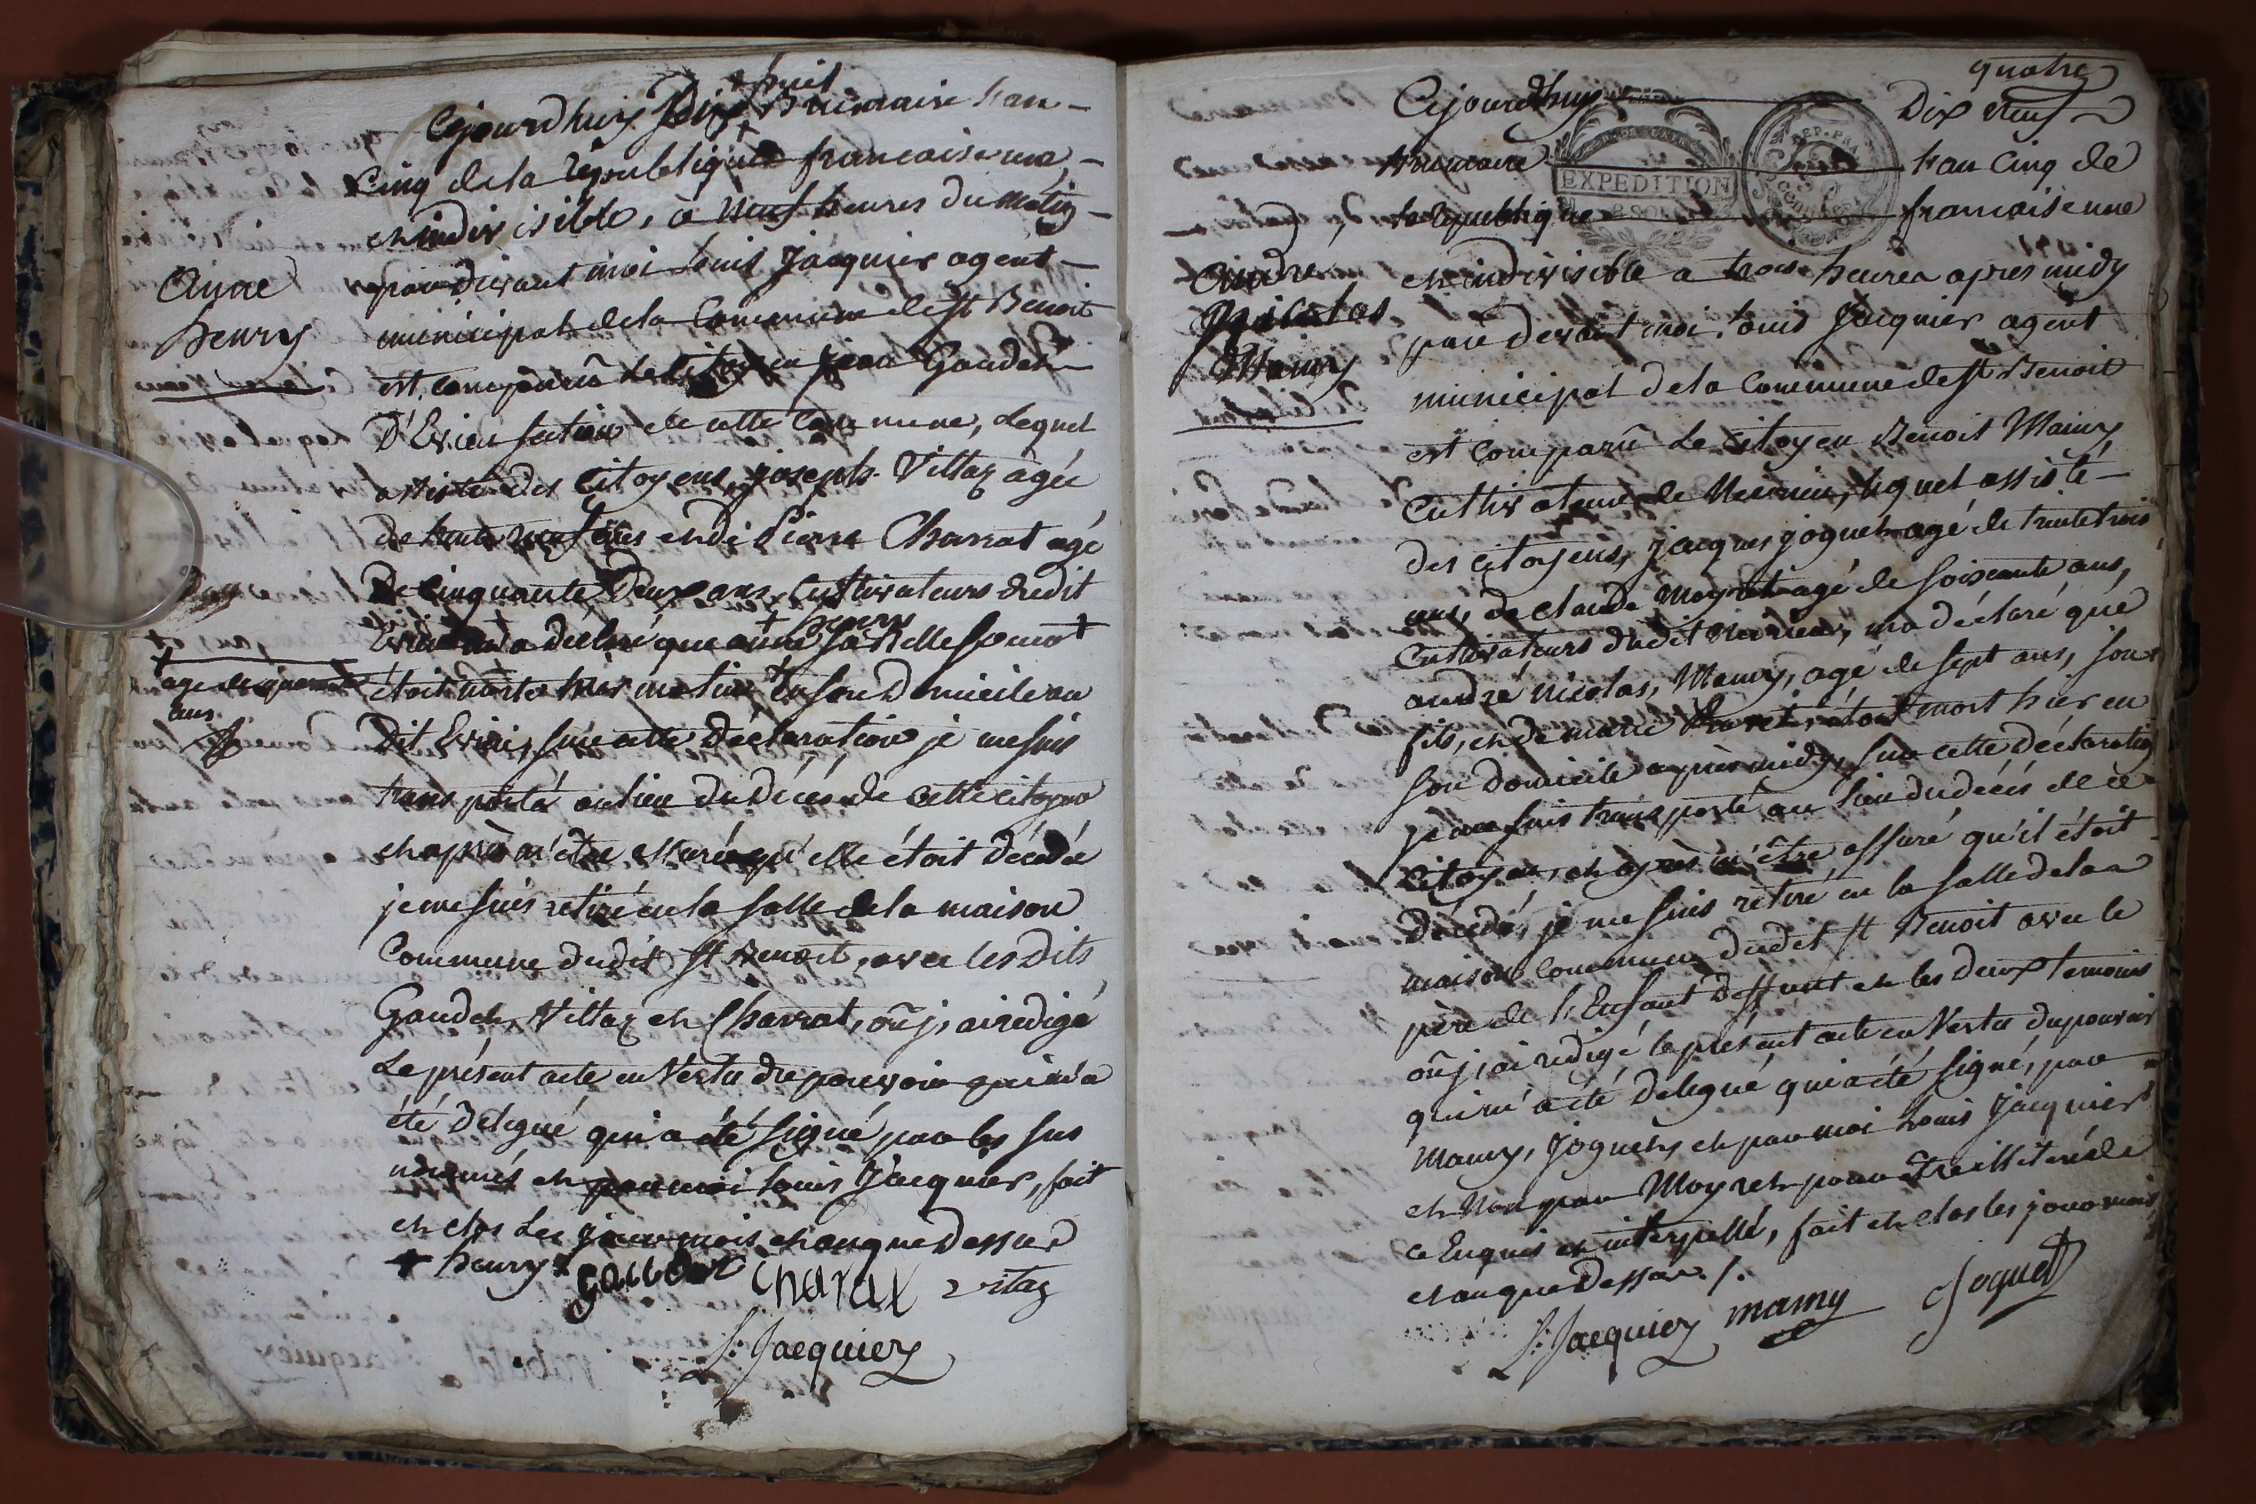 + huit
Cejourdhuy Dix + Brumaire l'an
Cinq de la république francaise une
et indivisible, à neuf heures du matin
par devant moi Louis Jacquier agent
municipal de la Commune de St Benoit
est comparû le Citoyen jean Gaudet
D'Evieu section de cette Commune, lequel
assisté des Citoyens, joseph Vittaz agée
de trente neuf ans et de Pierre Charrat agé
De Cinquante Deux ans, Cultivateurs dudit
Evieu m'a déclaré que anne + henry sa Belle soeur +
étoit morte hier matin En son Domicile au
Dit Evieu, sur cette Déclaration je me suis
transporté au lieu du Décès de cette citoyene
et après m'être assuré qu'elle étoit décédée
je me suis retiré en la salle de la maison
Commune dudit St Benoit, avec les Dits
Gaudet, Vittaz et Charrat, oû j'ai redigé
Le présent acte en Vertu du pouvoir qui m'a
été Delegué qui a été signé par les sus
nommés et par moi Louis Jacquier, fait
et clos Les jour mois et an que Dessus
+ henry +
gaudet charat vitaz
L: Jacquier
Anne
henry
+
agée de
ans
quatre
Cejourdhuy Dix neuf
brumaire l'an Cinq de
la République francaise une
et indivisible a trois heures apres midy
par devant moi Louis Jacquier agent
municipal de la Commune de St Benoit
est comparû Le Citoyen Benoit Mamy
Cultivateur de lequel assisté
des citoyens, jacques joguet agé de trente trois
ans, de claude Moyret agé de soixante ans,
Cultivateurs dudit ma déclaré que
andré nicolas, Mamy, agé de sept ans, son
fils, et de marie étoit mort hier en
son domicile après midy, sur cette déclaration
je me suis transporté au lieu du décès de ce
Citoyen, et après m'être assuré qu'il étoit
Décédé, je me suis retiré en la salle de la
maison commune dudit St Benoit avec le
père de l'Enfant Deffunt et les deux temoins
oû j'ai redigé le présent acte en Vertu du pouvoir
qui m'a été Delegué qui a été signé, par
Mamy, Joguet et par moi Louis Jacquier
et non par Moyret pour être illiteré de
ce Enquis et interpellé, fait et clos les jour mois
et an que Dessus ./.
L: Jacquier mamy Joguet
Andre
Nicolas
Mamy
EXPEDITION